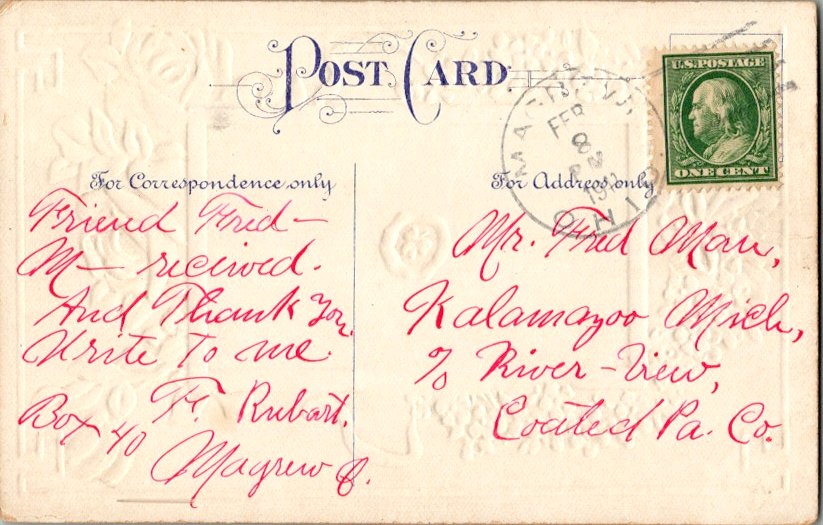 POST CARD
U.S. POSTAGE
ONE CENT
FEB
8
OHIO
For Correspondence only
For Address only
Friend Fred —
M — received.
And Thank You.
Write To me.
F. Rubart.
Box 40
Magrew O.
Mr. Fred Mau,
Kalamazoo Mich,
c/o River-View,
Coated Pa. Co.